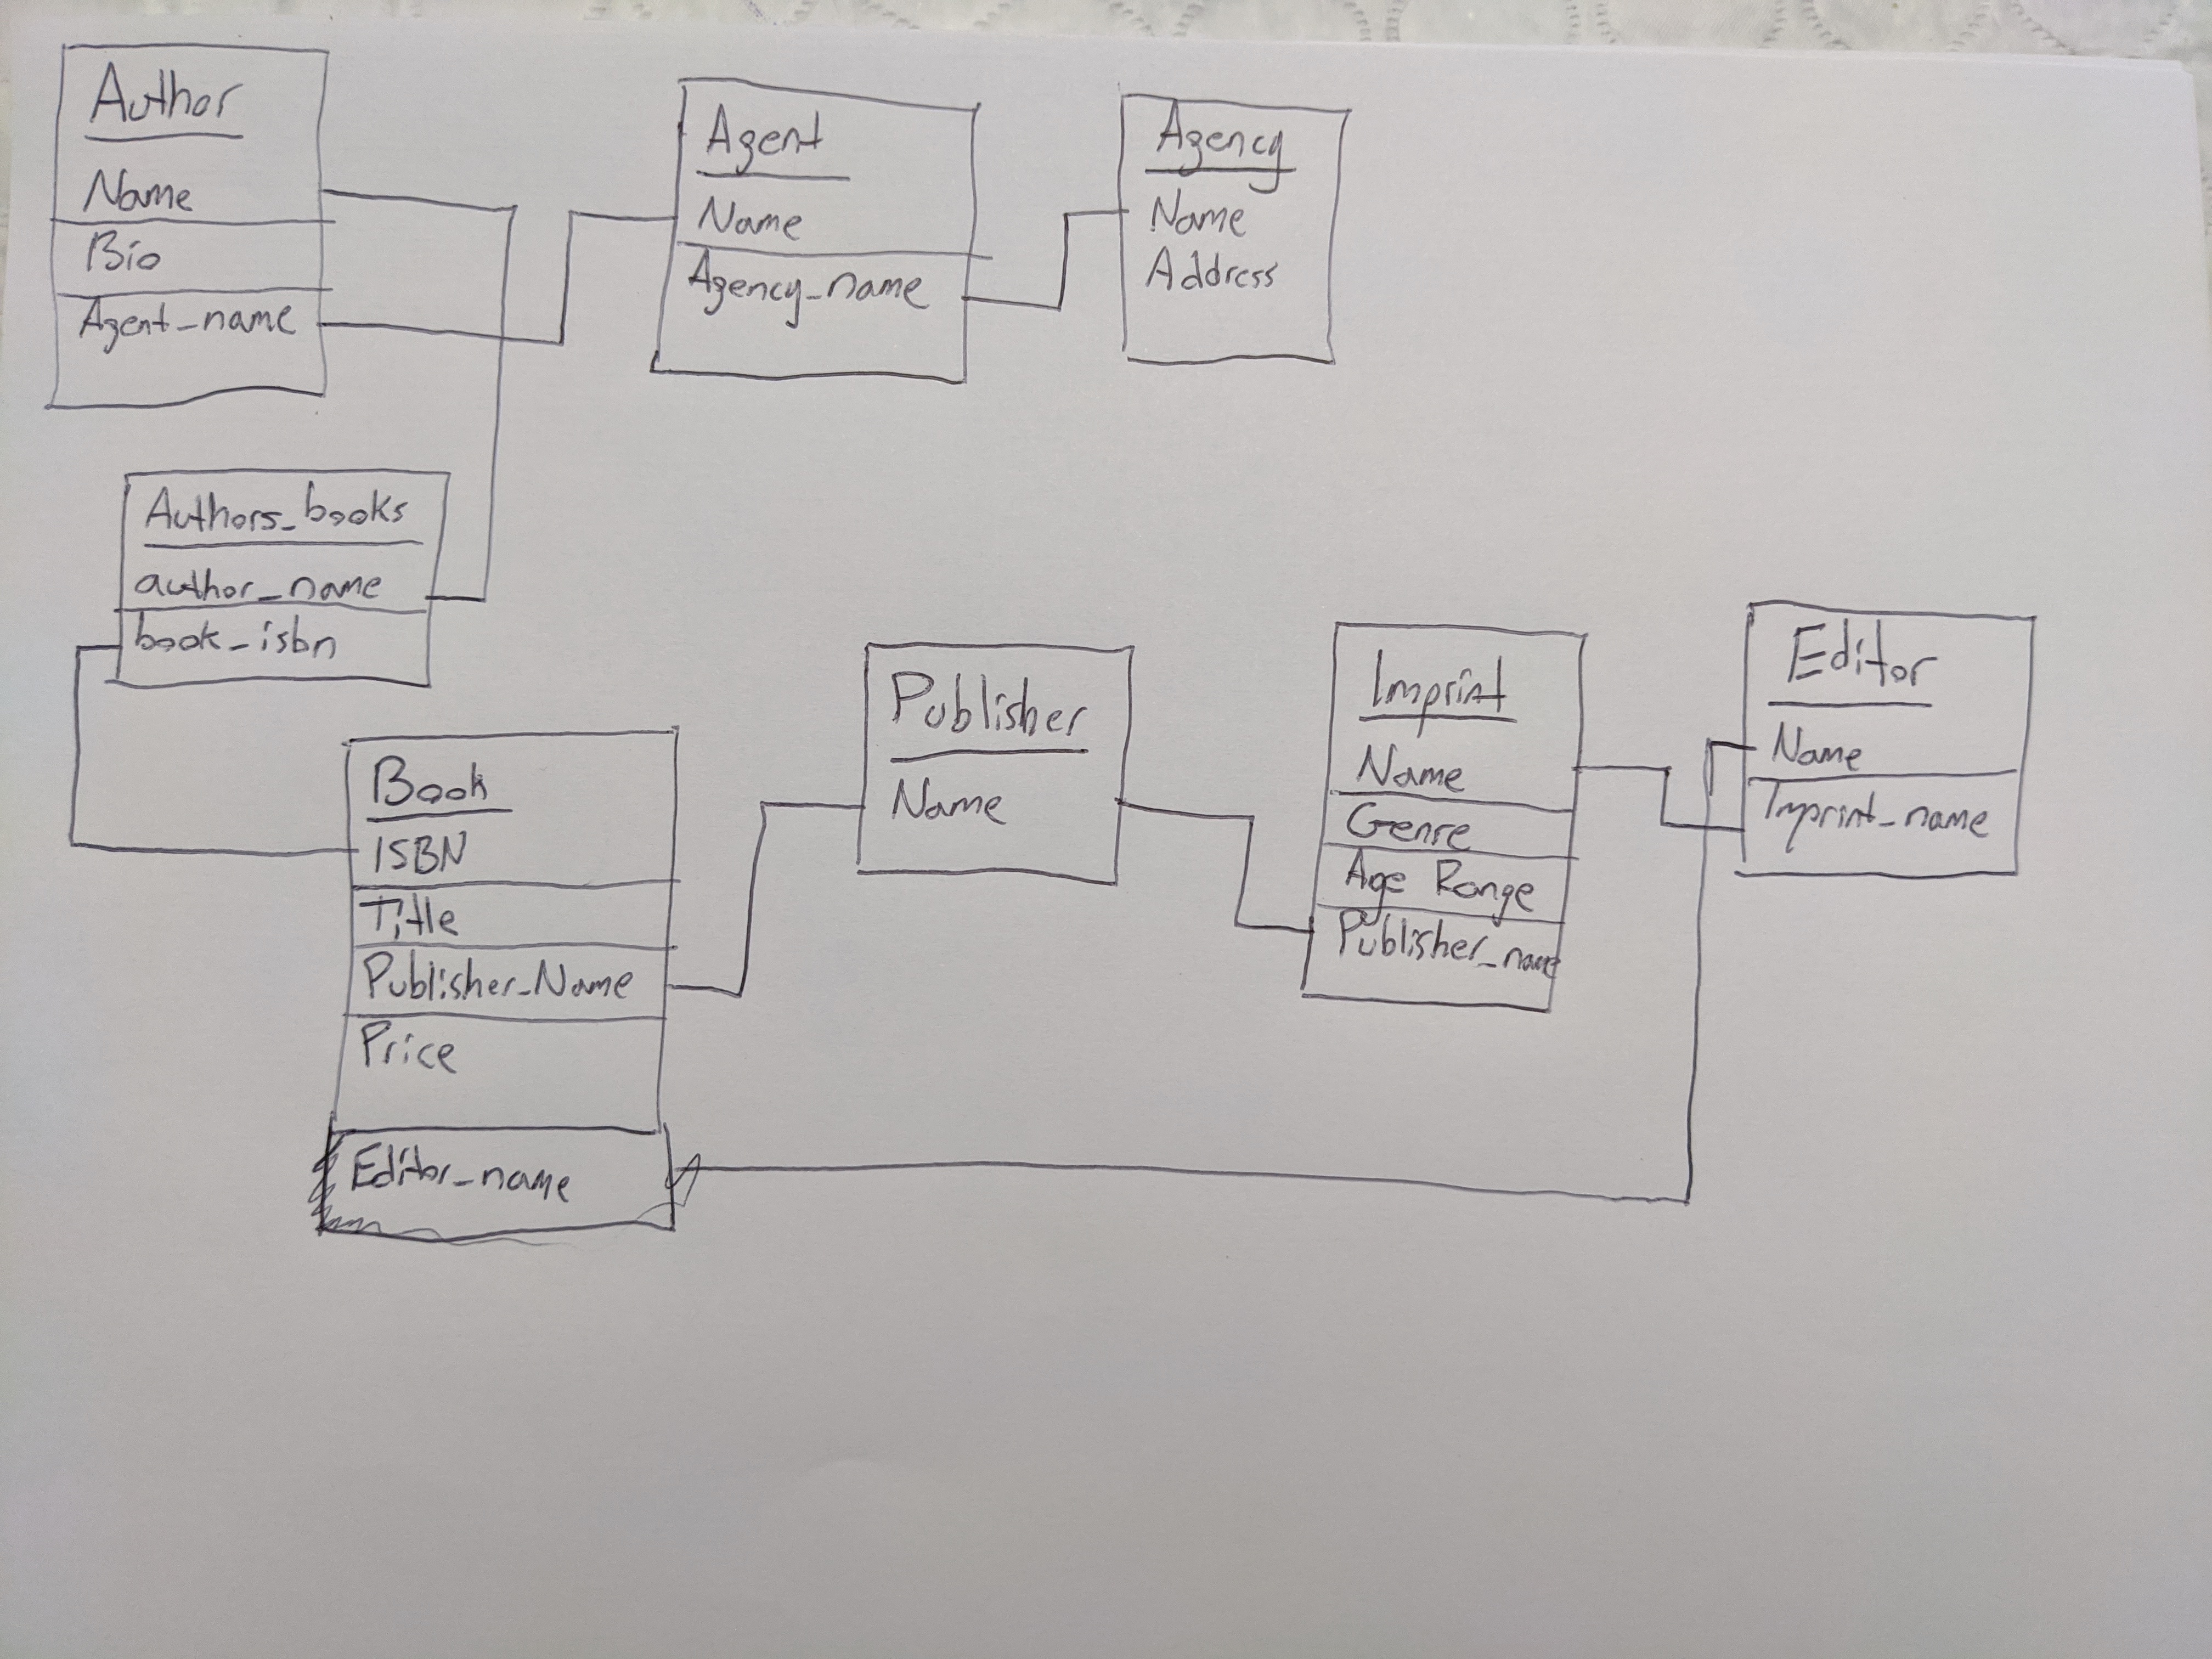 Author
Name
Bio
Agent_name
Agent
Name
Agency_name
Agency
Name
Address
Authors_books
author_name
book_isbn
Book
ISBN
Title
Publisher_Name
Price
Editor_name
Publisher
Name
Imprint
Name
Genre
Age Range
Publisher_name
Editor
Name
Imprint_name